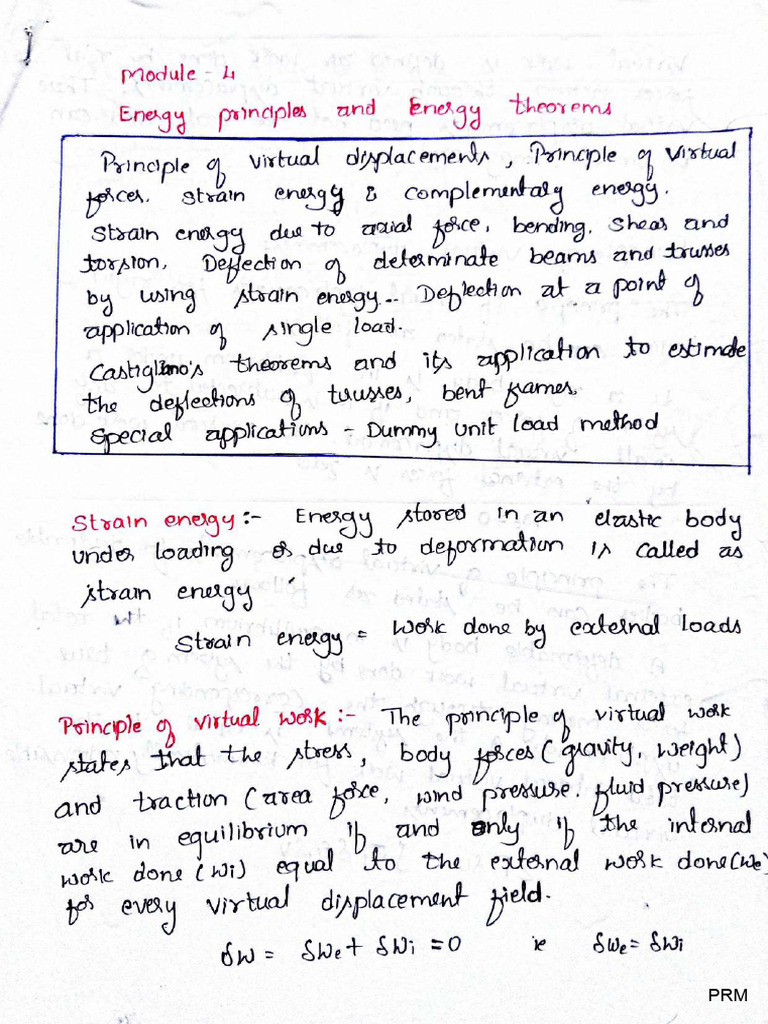 Module - 4
Energy principles and Energy theorems
Principle of virtual displacements, Principle of virtual
forces. Strain energy & complementary energy.
Strain energy due to axial force, bending. Shear and
torsion. Deflection of determinate beams and trusses
by using strain energy.. Deflection at a point of
application of single load.
Castigliano's theorems and its application to estimate
the deflections of trusses, bent frames.
Special applications - Dummy unit load method
Strain energy :- Energy stored in an elastic body
under loading or due to deformation is called as
strain energy
Strain energy = work done by external loads
Principle of virtual work :- The principle of virtual work
states that the stress, body forces (gravity, weight)
and traction (area force, wind pressure. fluid pressure)
are in equilibrium if and only if the internal
work done (wi) equal to the external work done (we)
for every virtual displacement field.
δW = δWe + δWi = 0 ie δWe = δWi
PRM